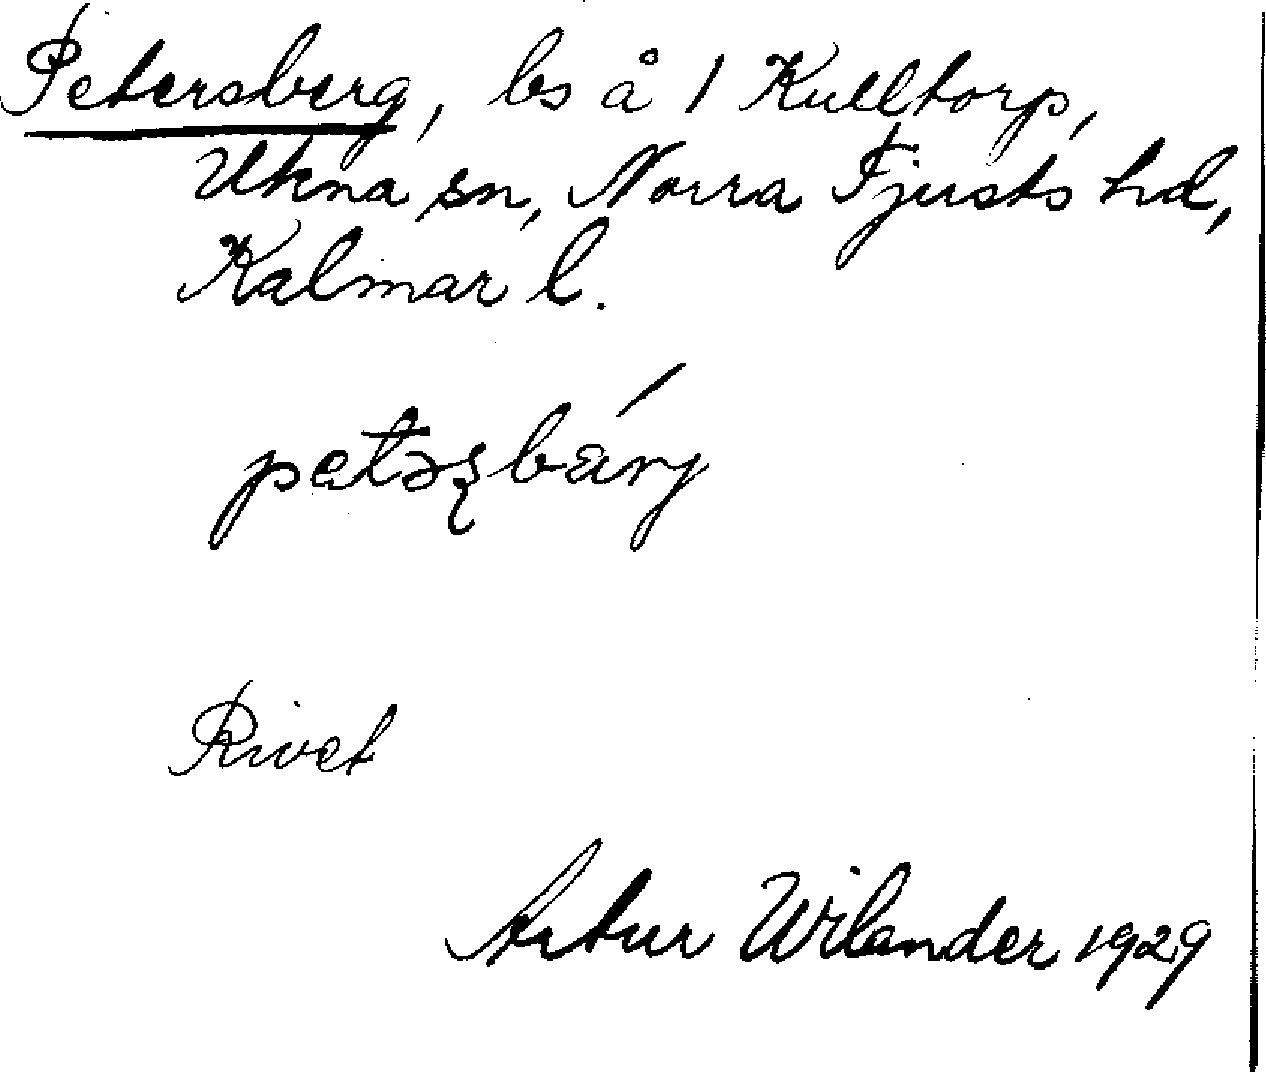 Petersberg, ls å 1 Kulltorp,
Ukna sn, Norra Tjusts hd,
Kalmar l.
petəʂbärj
Rivet
Artur Wilander 1929